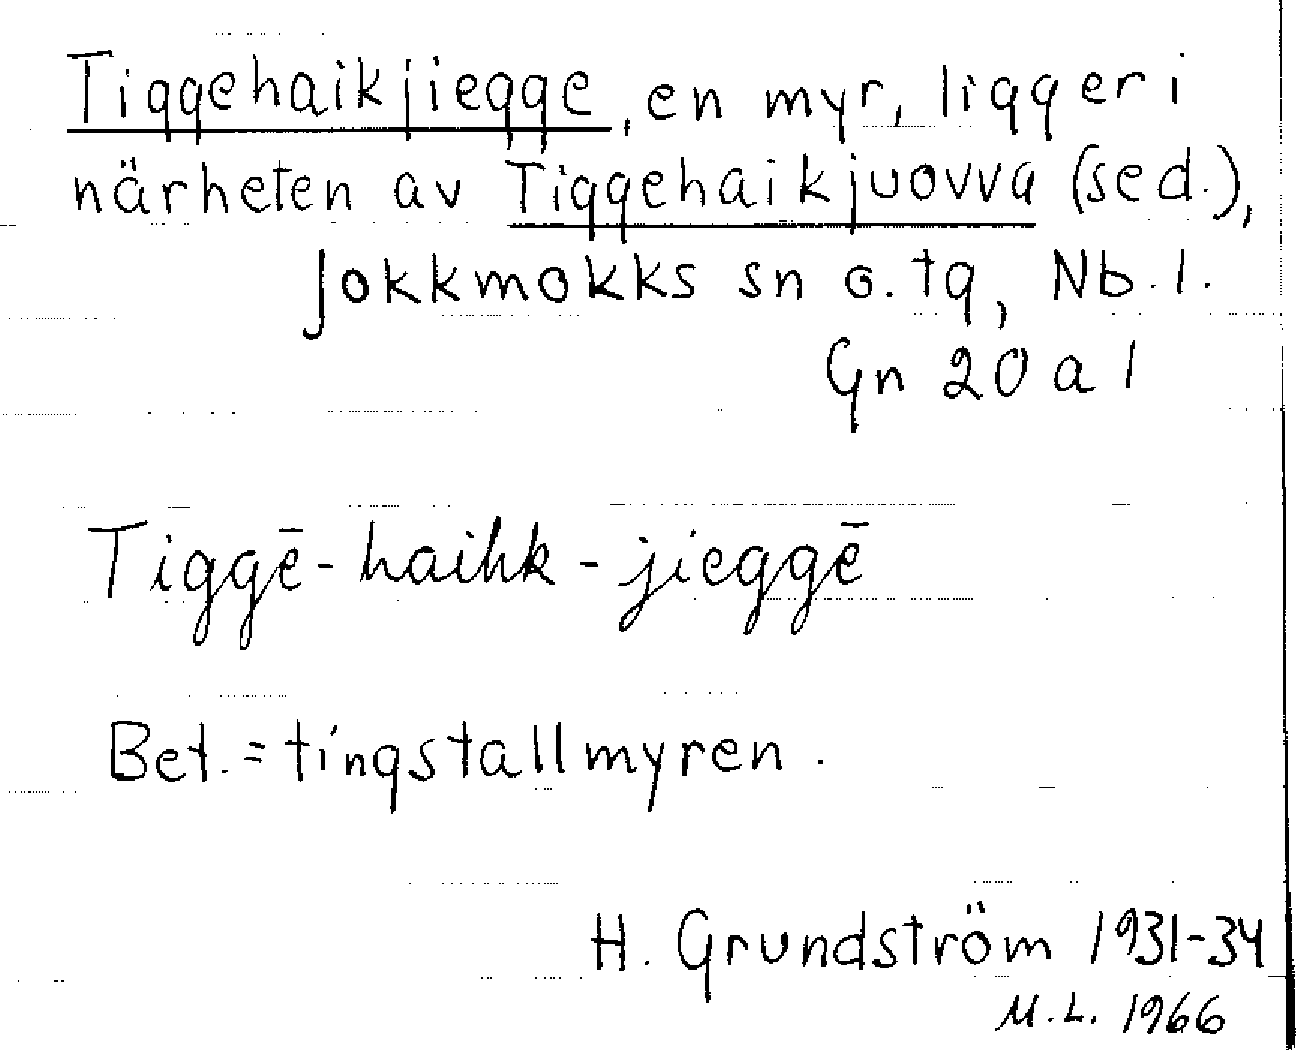 Tiggehaikjiegge, en myr, ligger i
närheten av Tiggehaikjuovva (sed.),
Jokkmokks sn o. tg, Nb. l.
Gn 20 a 1
Tiggē-haihk-jieggē
Bet. = tingstallmyren.
H. Grundström 1931-34
M.L. 1966